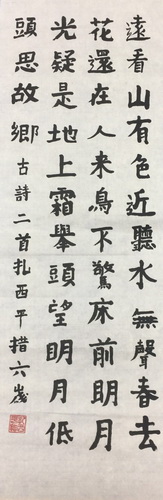 遠看山有色近聽水無聲春去
花還在人來鳥不驚床前明月
光疑是地上霜舉頭望明月低
頭思故鄉古詩二首扎西平措六歲